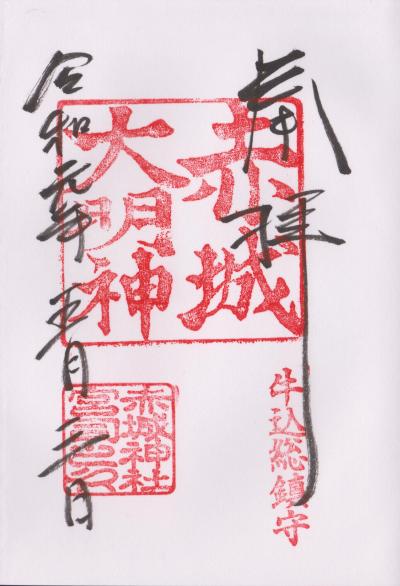 奉拝
牛込総鎮守
赤城
大明神
赤城神社
宮司之印
令和元年五月日